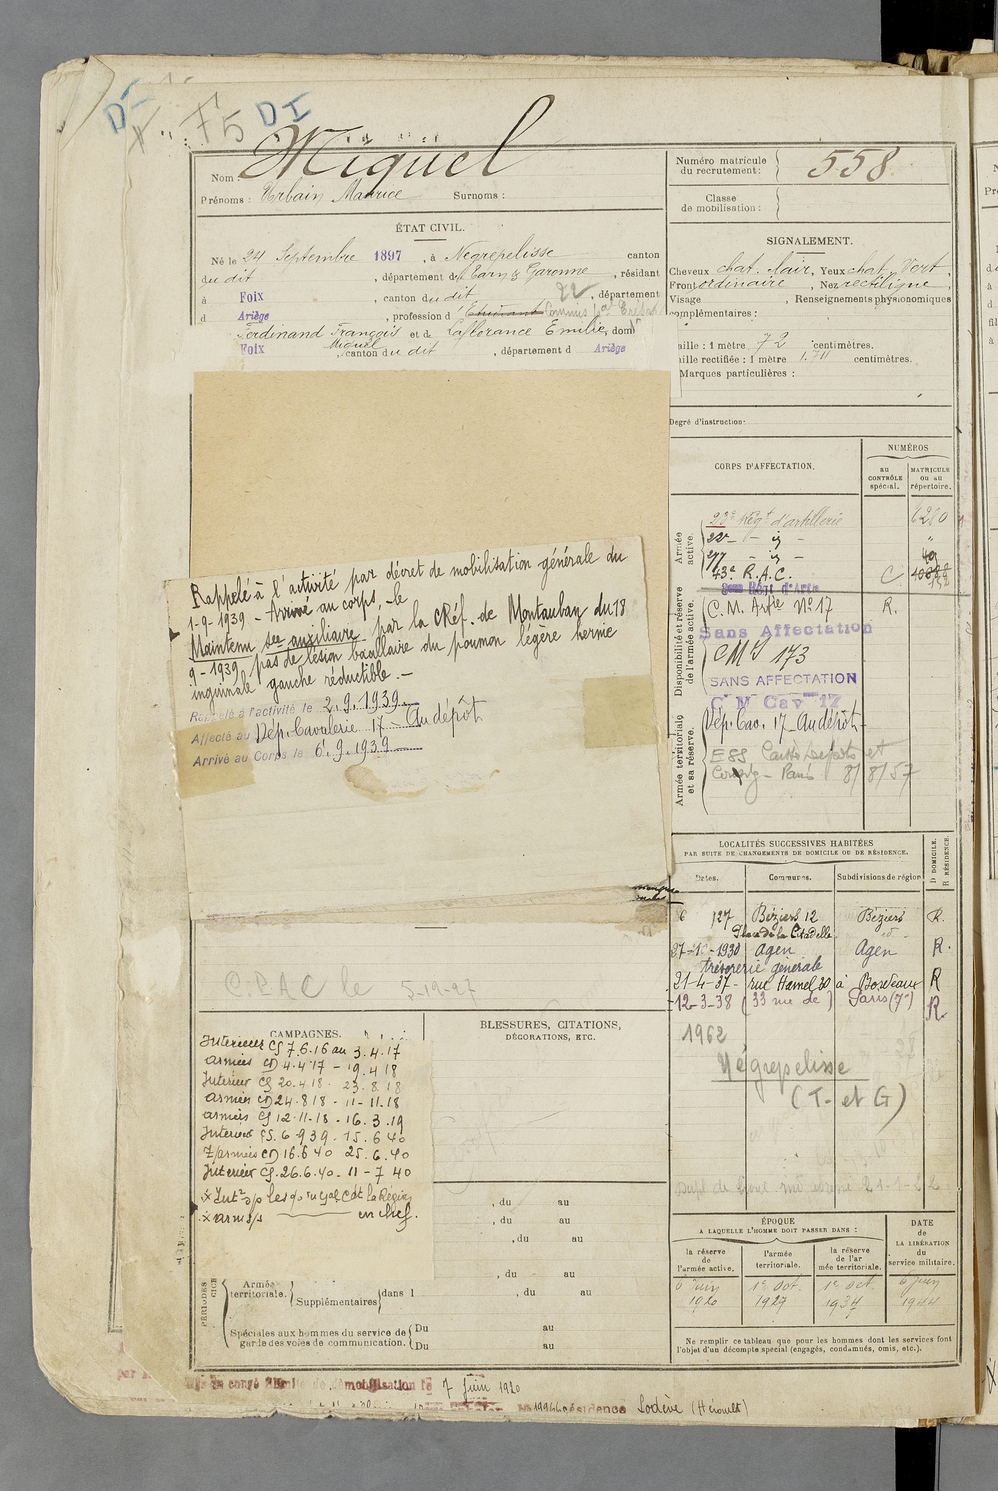 D I
F5
Nom : Miguel
Prénoms : Urbain Maurice Surnoms :
ÉTAT CIVIL.
Né le 24 Septembre 1897, à Nègrepelisse canton
du dit, département de Tarn & Garonne, résidant
à Foix, canton du dit 22, département
d Ariège, profession d' Etudiant Commis
Ferdinand François et de Laflorance Emilie, dom
Miguel
Foix, canton du dit, département d Ariège
Numéro matricule du recrutement : 558
Classe de mobilisation :
SIGNALEMENT.
Cheveux chat. clair, Yeux chat. Vert,
Front ordinaire, Nez rectiligne,
Visage , Renseignements physionomiques
complémentaires :
aille : 1 mètre 72 centimètres.
aille rectifiée : 1 mètre 1.711 centimètres.
Marques particulières :
Degré d'instruction:
CORPS D'AFFECTATION.
NUMÉROS
au contrôle spécial.
MATRICULE ou au répertoire.
Armée active.
22e Régt d'artillerie 6280
22 - - id -
277 - id -
43e R.A.C. C
Disponibilité et réserve de l'armée active.
C.M. Artie No 17 R.
Sans Affectation
CMI 173
SANS AFFECTATION
C M Cav 17
Armée territoriale et sa réserve.
Dép. Cav. 17 - Au dépôt
Paris 8/8/57
Rappelé à l'activité par décret de mobilisation générale du
1-9-1939 - Arrivé au corps, le
Maintenu sce auxiliaire par la CRéf. de Montauban du 18
9-1939 pas de lésion bacillaire du poumon légère hernie
inguinale gauche réductible. -
Rappelé à l'activité le 2.9.1939
Affecté au Dép. Cavalerie 17 - Au dépôt
Arrivé au Corps le 6.9.1939
LOCALITÉS SUCCESSIVES HABITÉES
PAR SUITE DE CHANGEMENTS DE DOMICILE OU DE RÉSIDENCE.
Dates. Communes. Subdivisions de région D DOMICILE. R RÉSIDENCE.
127 Béziers 12 Béziers R.
Place de la Citadelle
1930 Agen Agen R.
trésorerie générale
21-4-37- rue Hamel 30 à Bordeaux R
-12-3-38 (33 rue de ) Paris (7e) R
1962
Nègrepelisse
(T- et G)
C.R.A.C le 5-12-27
CAMPAGNES.
Intérieur CS 7.6.16 au 3.4.17
armées CD 4.4.17 - 19.4.18
Intérieur CS 20.4.18 - 23.8.18
armées CD 24.8.18 - 11-11.18
armées CS 12.11.18 - 16.3.19
Intérieur CS. 6-9 39. 15.6 40
Z/armées CD 16.6 40 25.6.40
Intérieur CS. 26.6.40 - 11-7 40
BLESSURES, CITATIONS,
DÉCORATIONS, ETC.
, du au
, du au
, du au
, du au
Armée territoriale. Supplémentaires dans l , du au
Spéciales aux hommes du service de garde des voies de communication. Du au
Du au
ÉPOQUE
A LAQUELLE L'HOMME DOIT PASSER DANS :
DATE DE LA LIBÉRATION du service militaire.
la réserve de l'armée active.
l'armée territoriale.
la réserve de l'armée territoriale.
6 Juin 1920
1er Oct. 1927
1er Oct. 1937
6 Juin 1944
Ne remplir ce tableau que pour les hommes dont les services font
l'objet d'un décompte spécial (engagés, condamnés, omis, etc.).
congé illimité de démobilisation le 7 Juin 1920
résidence Lodève (Hérault)